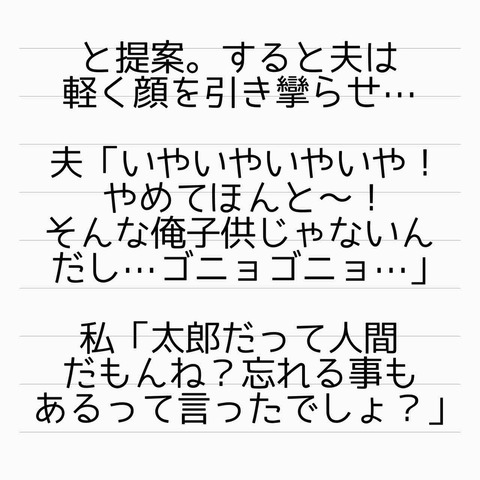 と提案。すると夫は
軽く顔を引き攣らせ…
夫「いやいやいやいや！
やめてほんと～！
そんな俺子供じゃないん
だし…ゴニョゴニョ…」
私「太郎だって人間
だもんね？忘れる事も
あるって言ったでしょ？」